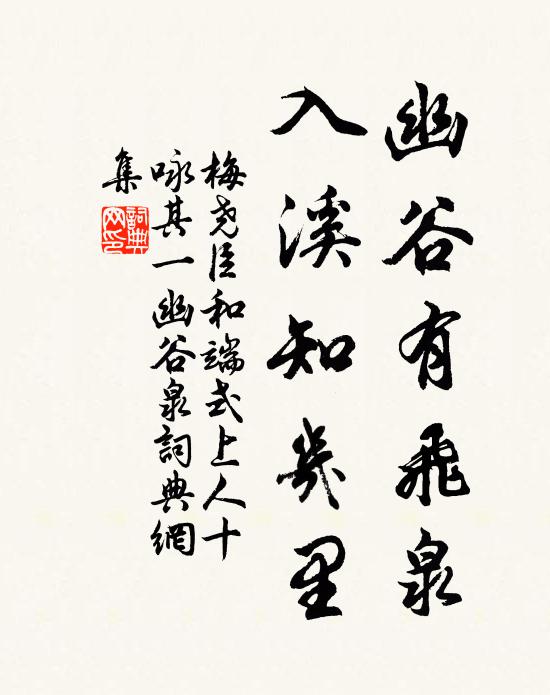 幽谷有飛泉
入溪知幾里
梅堯臣和端式上人十
咏其一幽谷泉詞典網
集
詞典
网印